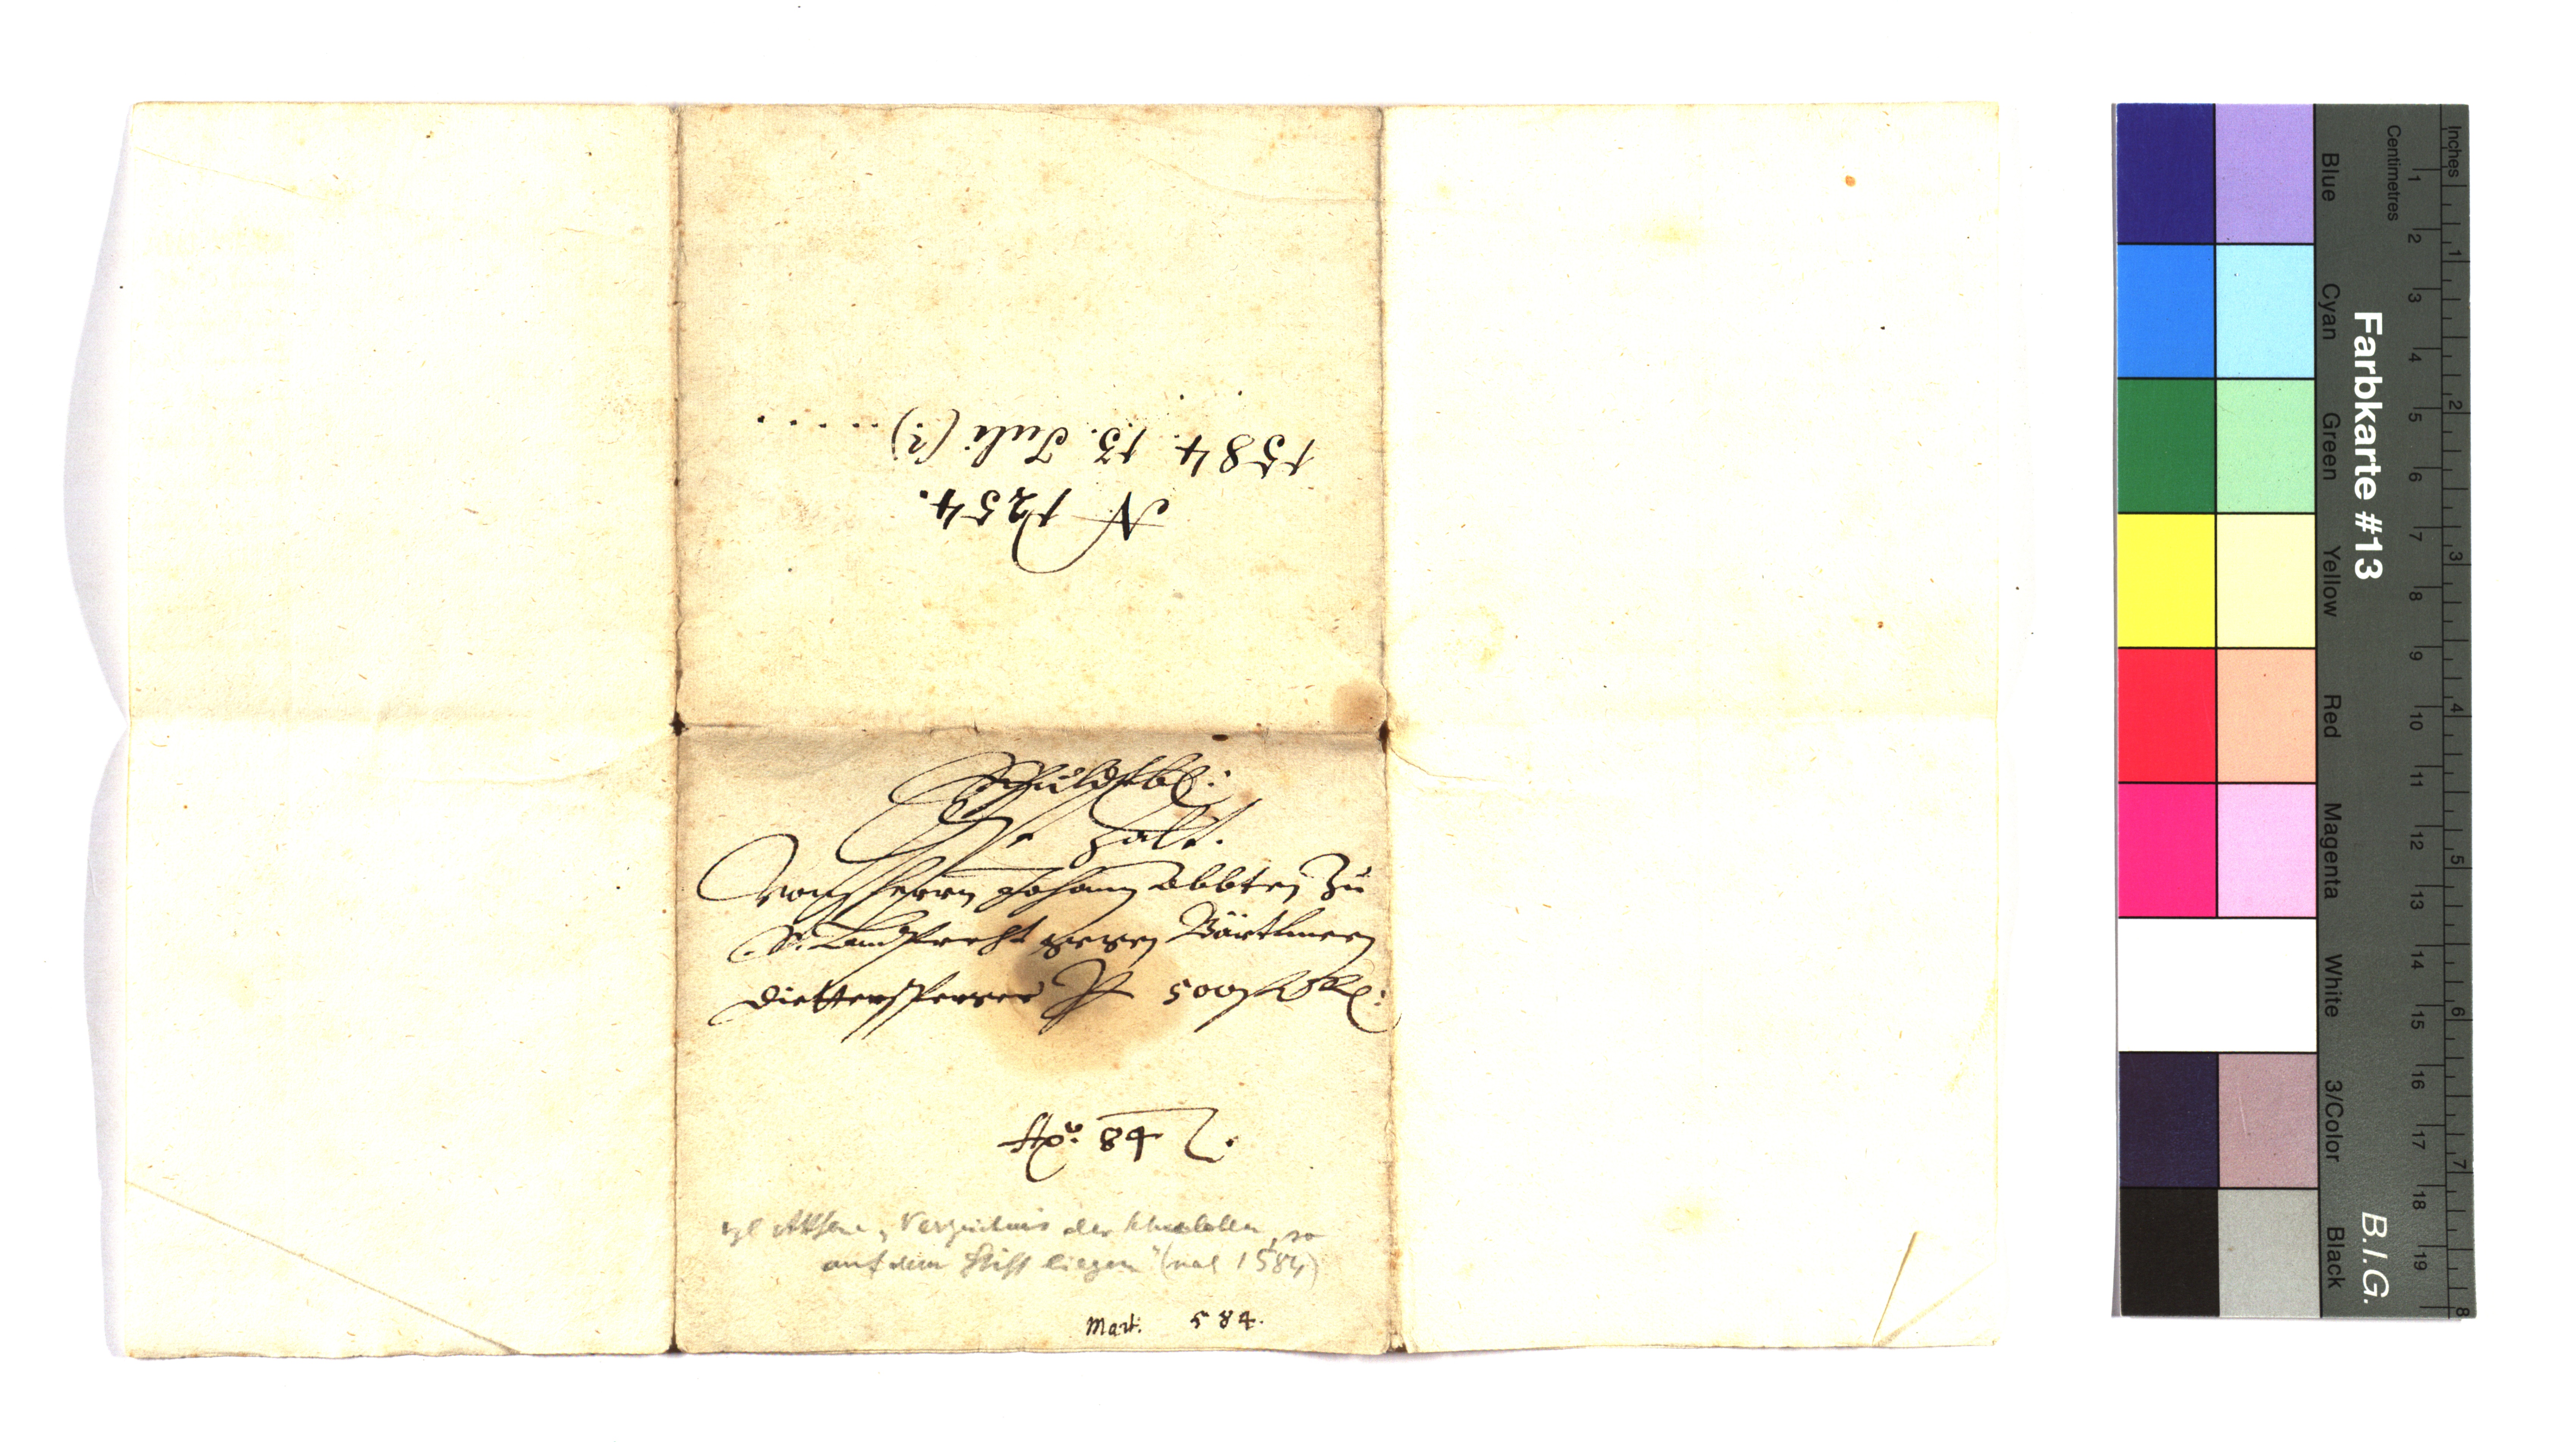 N 1254.
1584. 13. Juli (?) .....
Schuldtbr:
Ist Zalt.
Von Herrn Johann Abbten Zu
St. Lamprecht gegen Bärtlmeen
Pr 500
Ao: 84
vgl Verzeichnis der Schulden, so
auf dem Stift liegen" (nal 1584)
Mart. 584.
Farbkarte #13
B.I.G.
Centimetres
Inches
1 2 3 4 5 6 7 8 9 10 11 12 13 14 15 16 17 18 19
1 2 3 4 5 6 7 8
Blue
Cyan
Green
Yellow
Red
Magenta
White
3/Color
Black